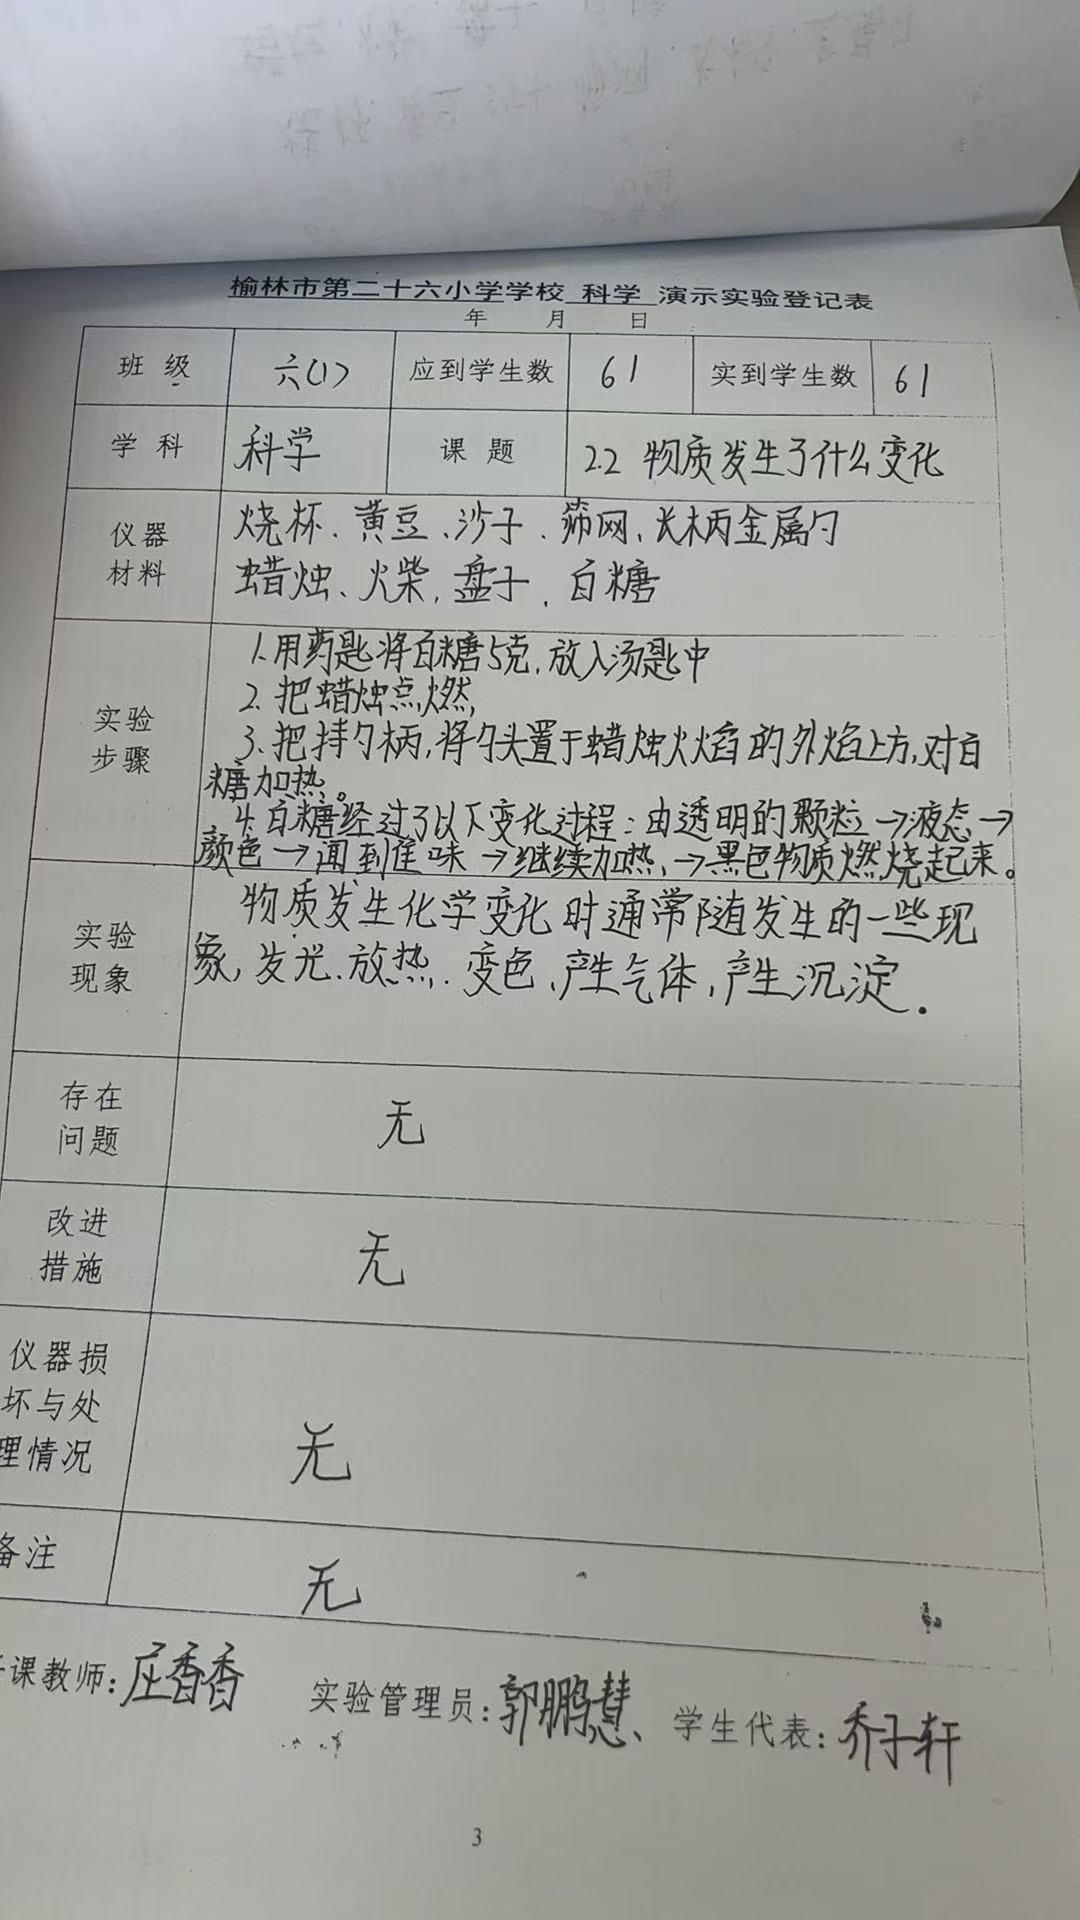 榆林市第二十六小学学校 科学 演示实验登记表
年 月 日
班 级 六(1) 应到学生数 61 实到学生数 61
学 科 科学 课 题 2.2 物质发生了什么变化
仪器
材料
烧杯、黄豆、沙子、筛网、长柄金属勺
蜡烛、火柴、盘子、白糖
实验
步骤
1.用药匙将白糖5克,放入汤匙中
2.把蜡烛点燃,
3.把持勺柄,将勺头置于蜡烛火焰的外焰上方,对白
糖加热。
4.白糖经过了以下变化过程:由透明的颗粒→液态→
颜色→闻到焦味→继续加热,→黑色物质燃烧起来。
实验
现象
物质发生化学变化时通常随发生的一些现
象,发光、放热、变色、产生气体,产生沉淀.
存在
问题
无
改进
措施
无
仪器损
坏与处
理情况
无
备注
无
课教师:庄香香 实验管理员:郭鹏慧 学生代表:乔子轩
3